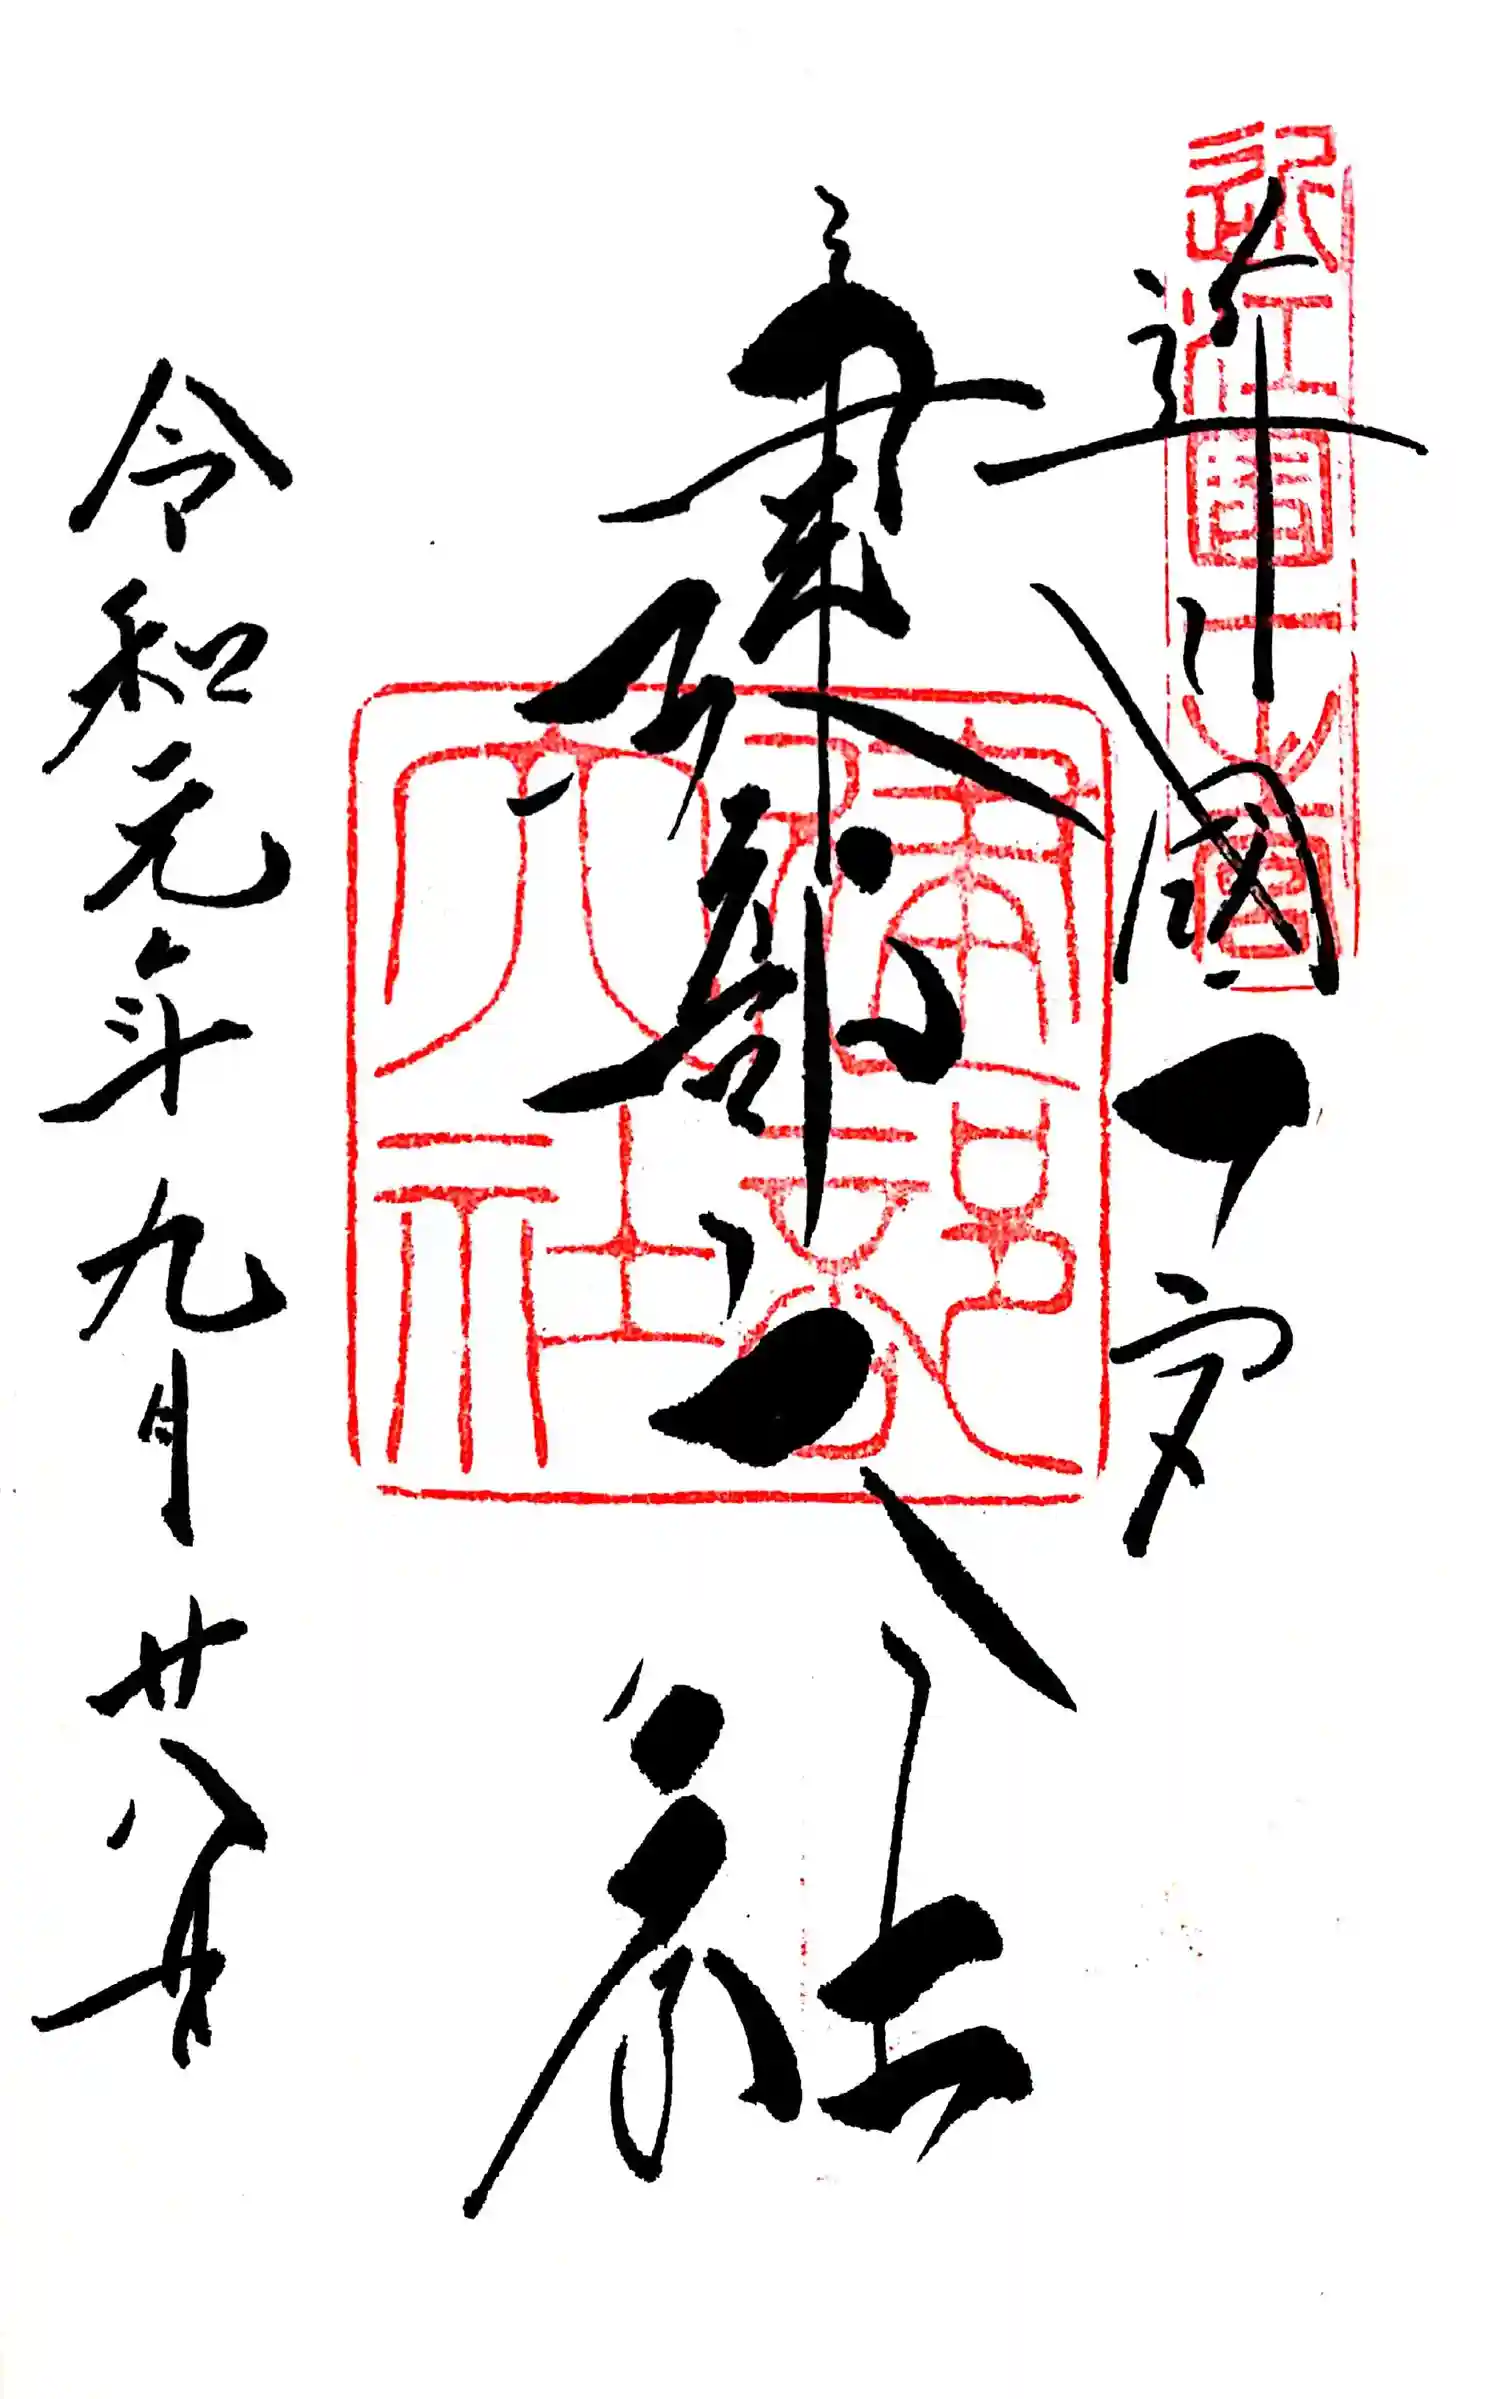 近江國一之宮
近江國一宮
建部大社
建部大社
令和元年九月廿八日